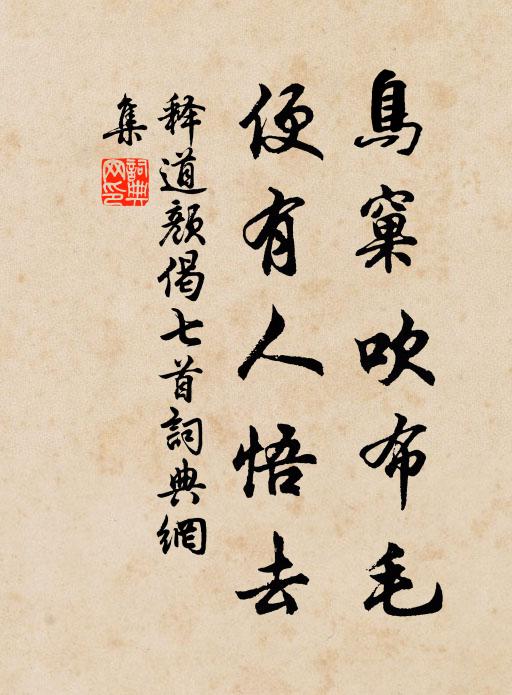 鳥窠吹布毛
便有人悟去
释道颜偈七首詞典網
集
詞典网印